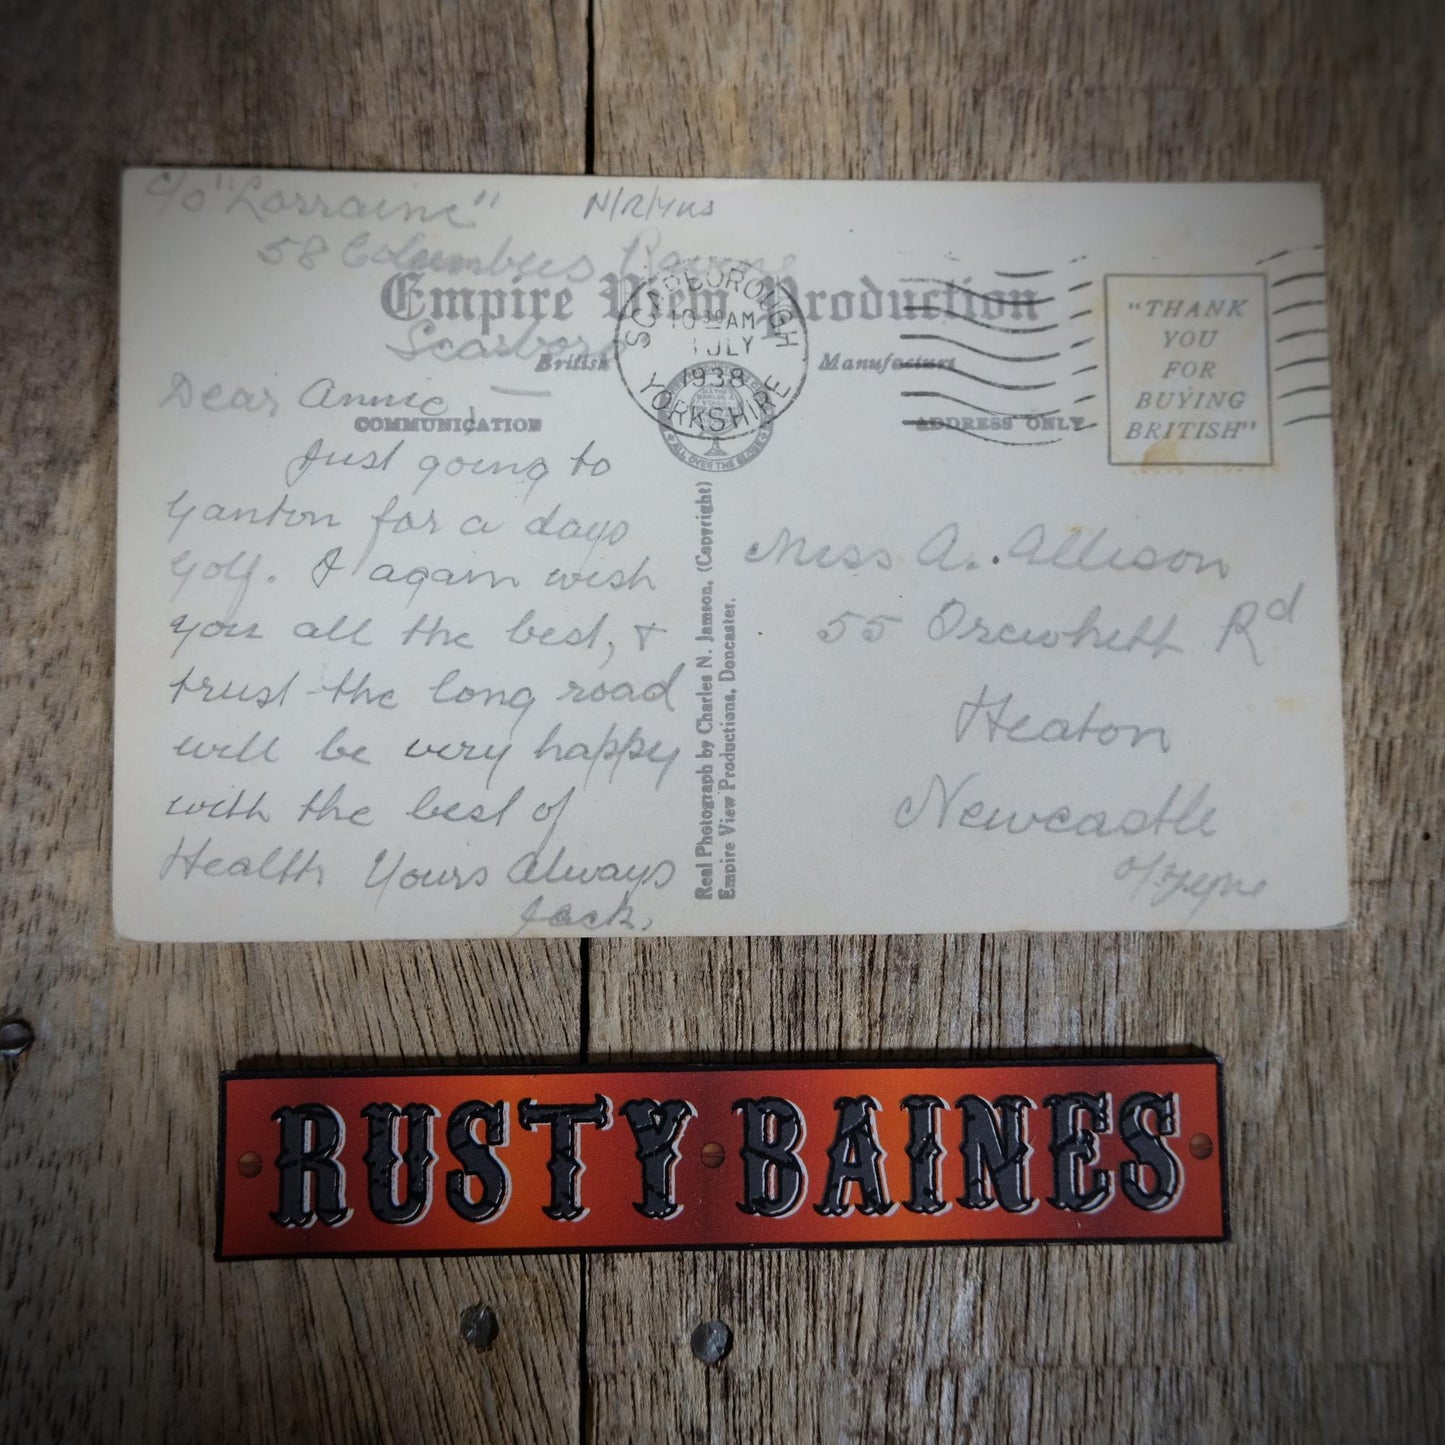 C/o "Lorraine"
N/R/Yks
58 Columbus Ravine
Empire View Production
Scarboro
British Manufacture
SCARBOROUGH
10 30 AM
1 JLY
1938
YORKSHIRE
ALL OVER THE GLOBE
"THANK
YOU
FOR
BUYING
BRITISH"
COMMUNICATION
ADDRESS ONLY
Dear Annie,
Just going to
Ganton for a days
Golf. I again wish
you all the best, &
trust the long road
will be very happy
with the best of
Health Yours Always
Jack.
Real Photograph by Charles N. Jamson. (Copyright)
Empire View Productions, Doncaster.
Miss A. Allison
55 Orewhitt Rd
Heaton
Newcastle
o/Tyne
RUSTY BAINES